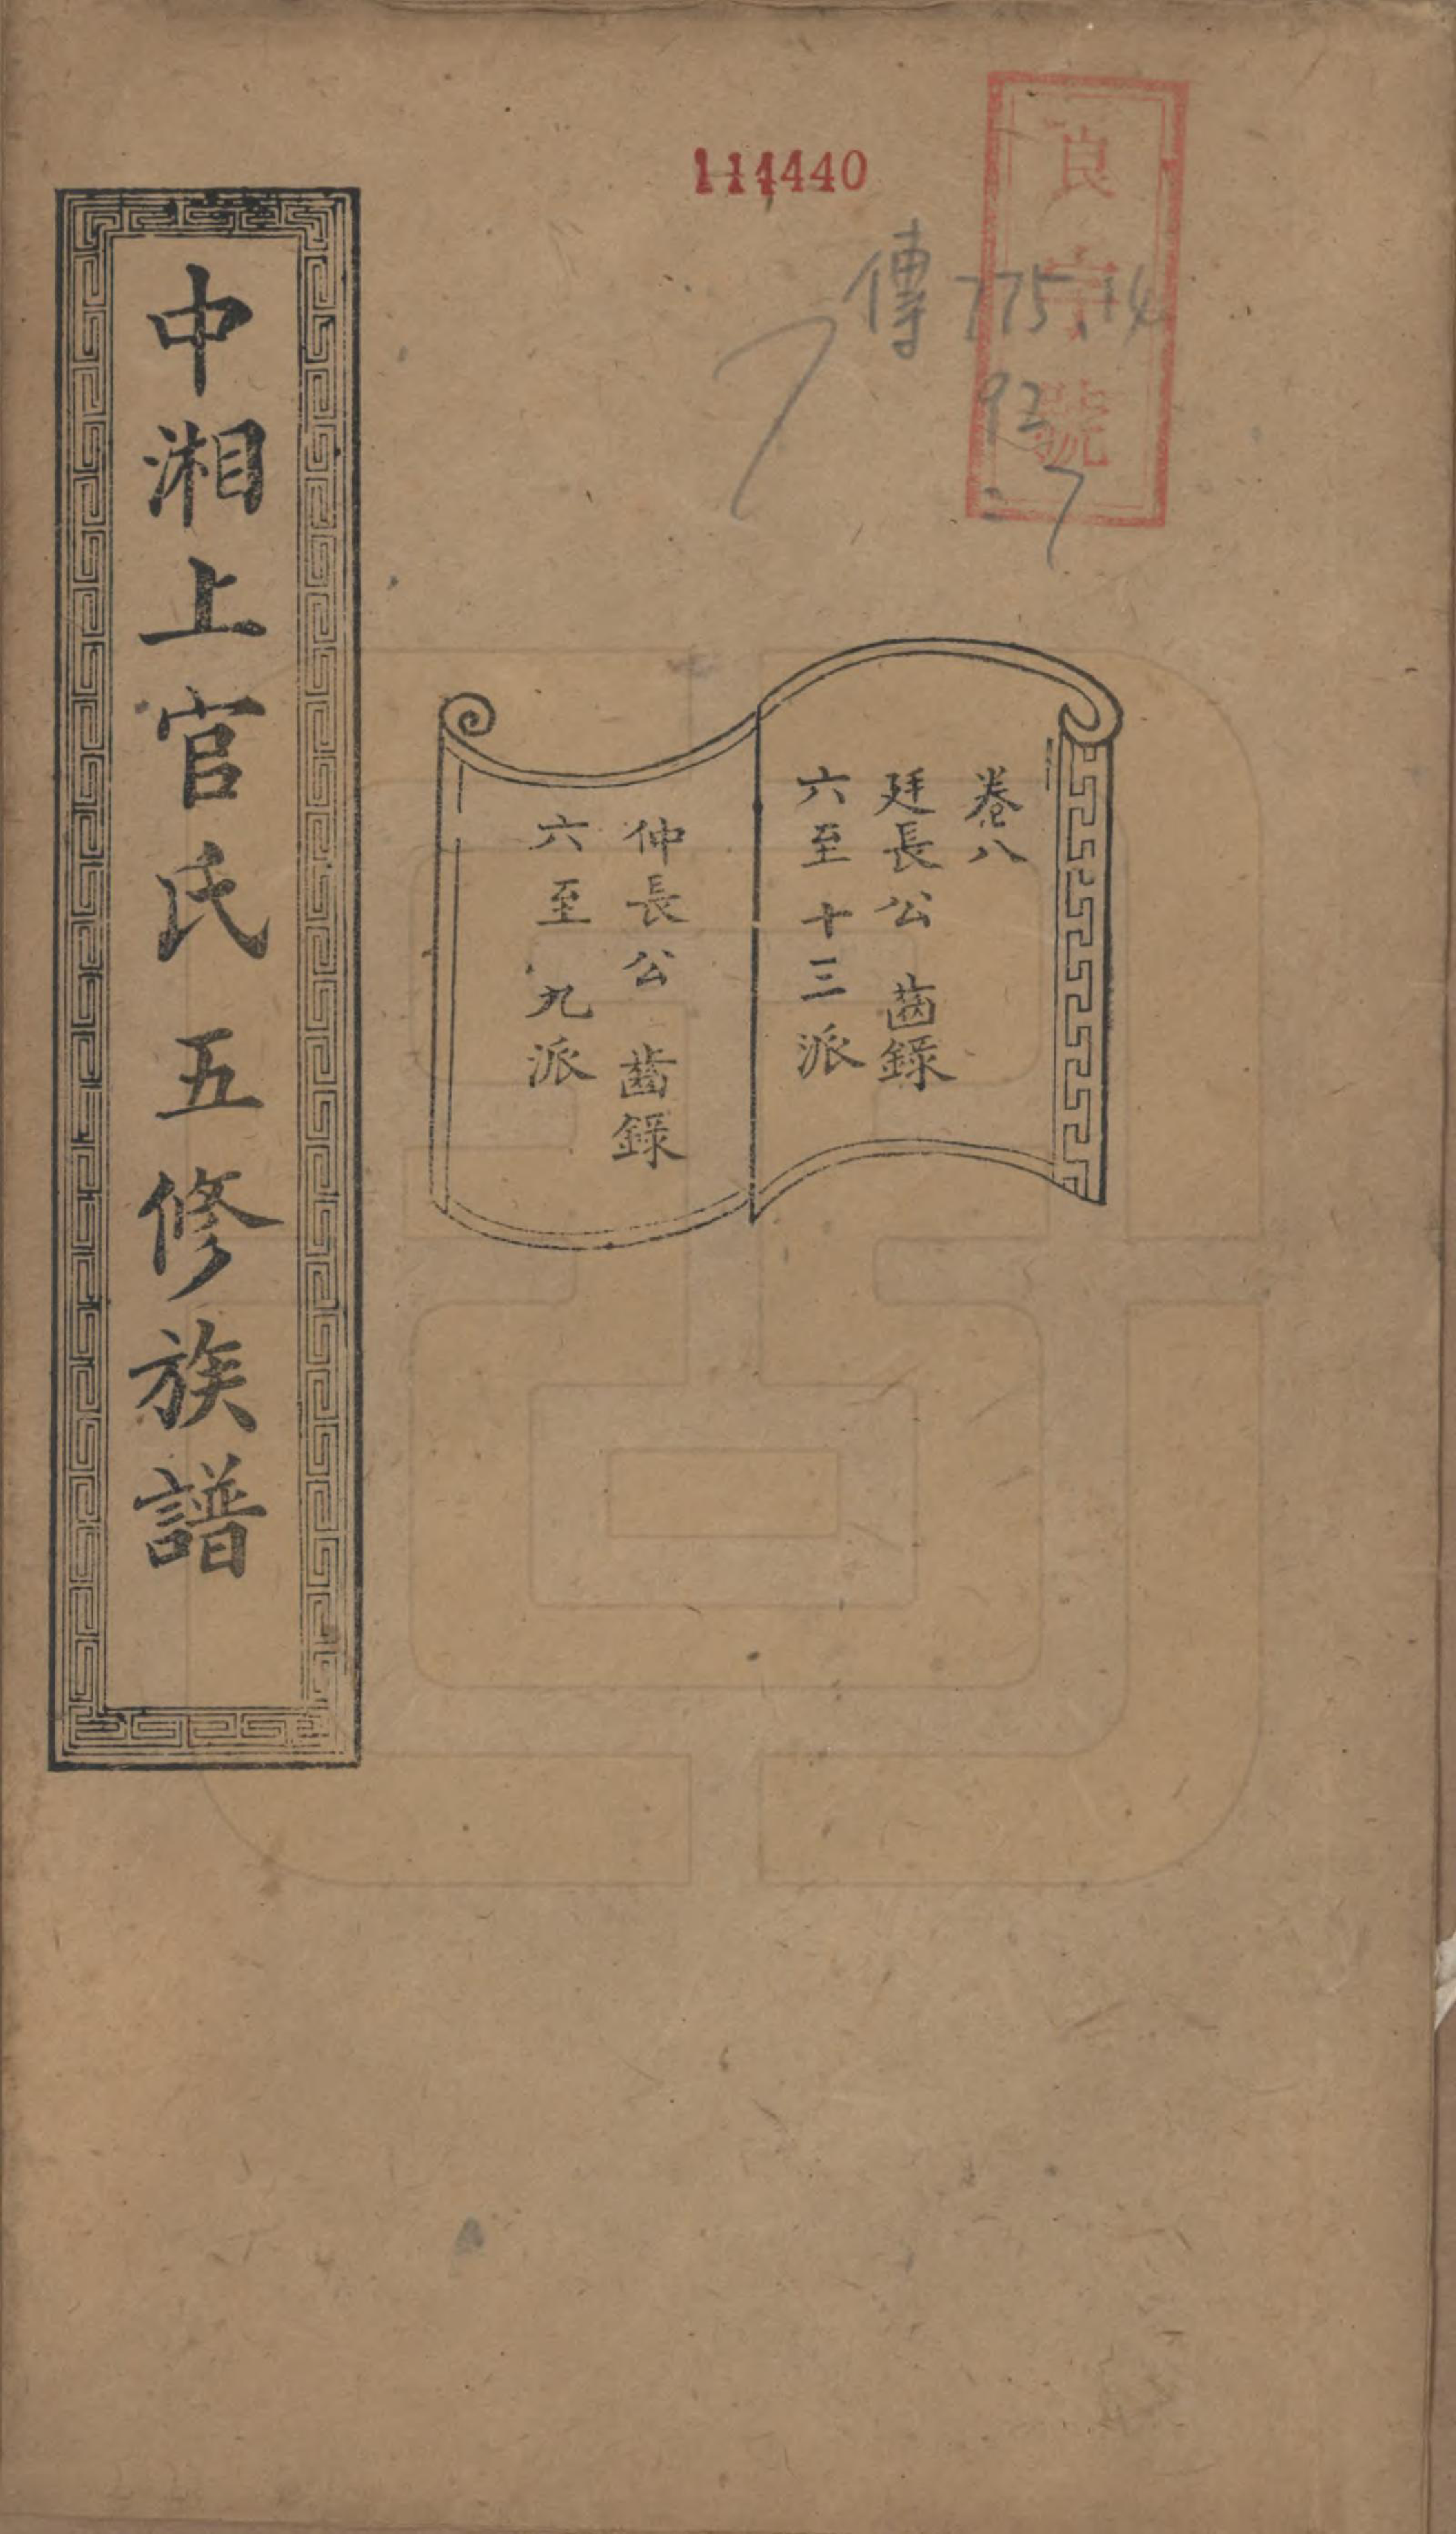 良字號
114440
傳 775.14
93
:7
卷八
廷長公 齒錄
六至十三派
仲長公 齒錄
六至九派
中湘上官氏五修族譜